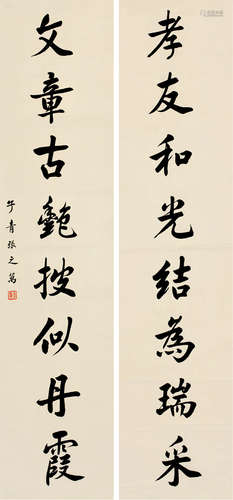 孝友和光結為瑞采
文章古艷披似丹霞
子青張之萬